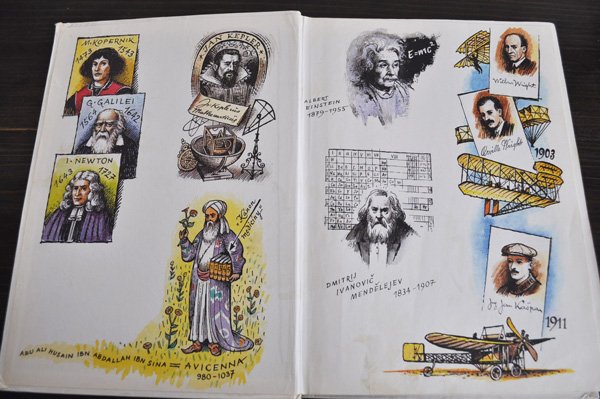 M. KOPERNIK
1473 1543
G. GALILEI
1564 1642
I. NEWTON
1643 1727
JAN KEPLER
J. Keplerus
mathematicus
ABU ALI HUSAIN IBN ABDALLAH IBN SINA = AVICENNA
980-1037
E=mc²
ALBERT
EINSTEIN
1879-1955
DMITRIJ
IVANOVIČ
MENDĚLEJEV
1834-1907
Wilbur Wright
Orville Wright
1903
Jan Kašpar
1911